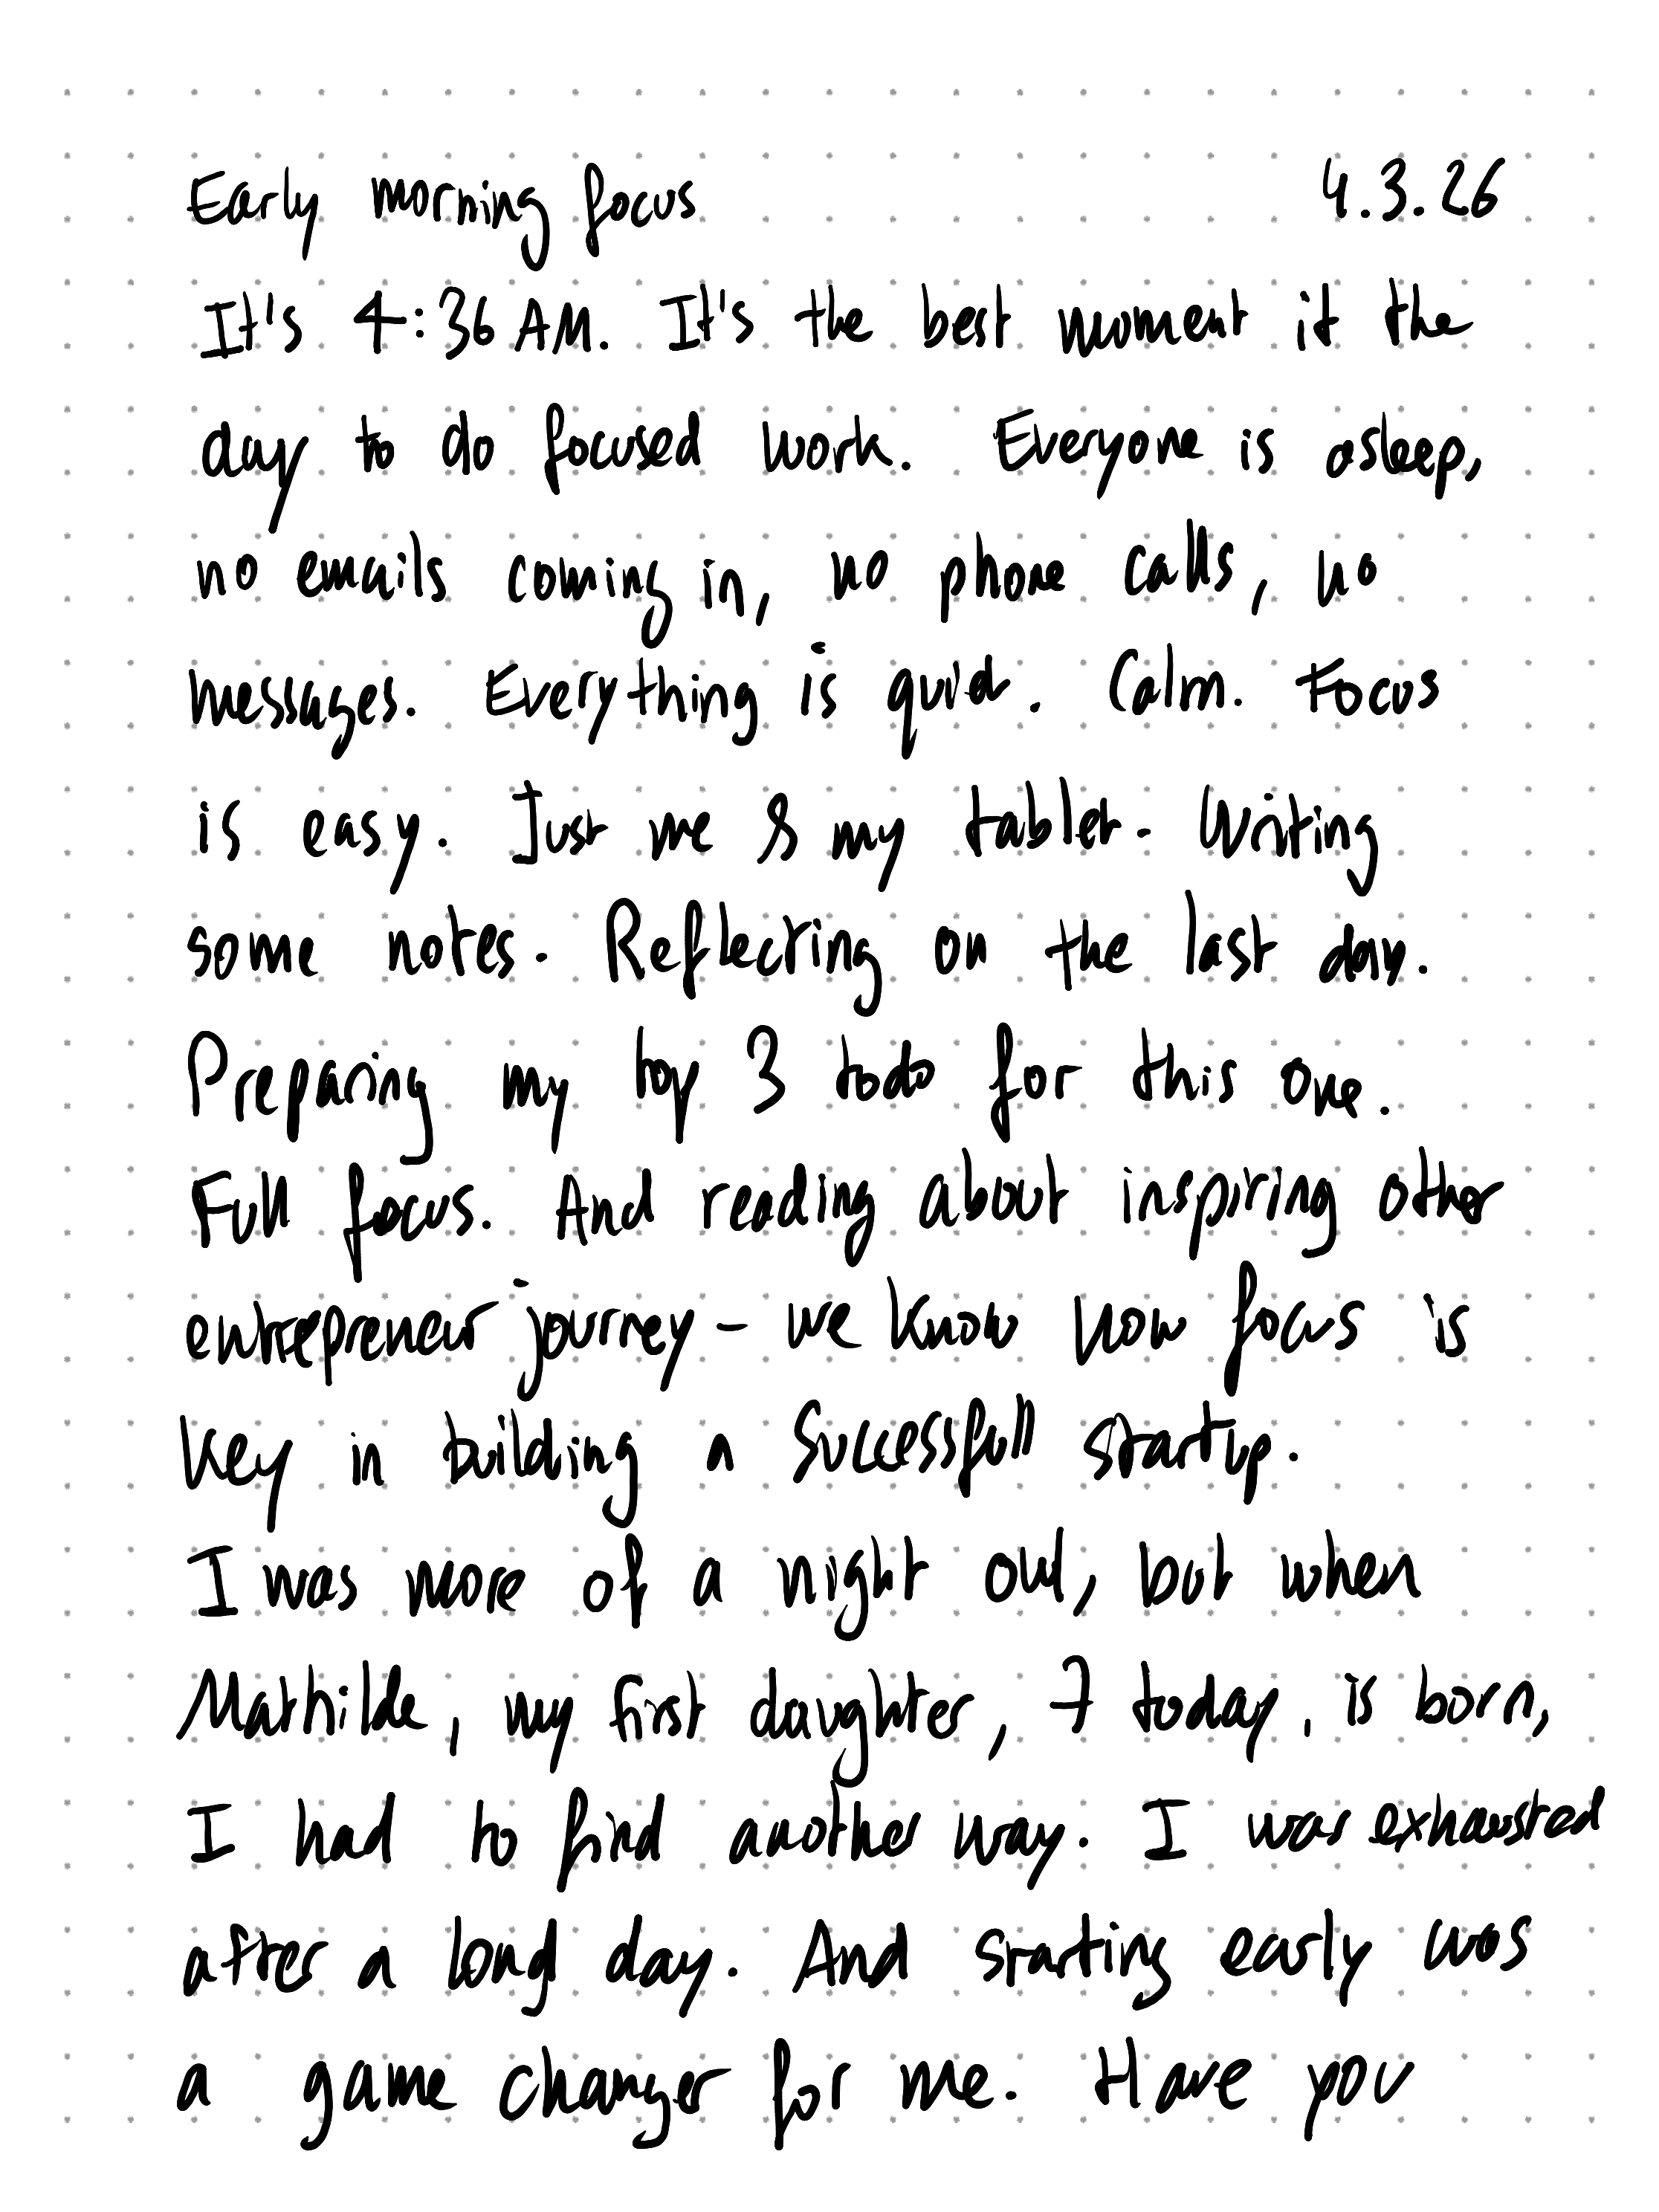 Early morning focus 4.3.26
It's 4:36 AM. It's the best moment it the
day to do focused work. Everyone is asleep,
no emails coming in, no phone calls, no
messages. Everything is quiet. Calm. Focus
is easy. Just me & my tablet. Writing
some notes. Reflecting on the last day.
Preparing my top 3 todo for this one.
Full focus. And reading about inspiring other
entrepreneur journey - we know how focus is
key in building a successfull startup.
I was more of a night owl, but when
Mathilde, my first daughter, 7 today, is born,
I had to find another way. I was exhausted
after a long day. And starting early was
a game changer for me. Have you